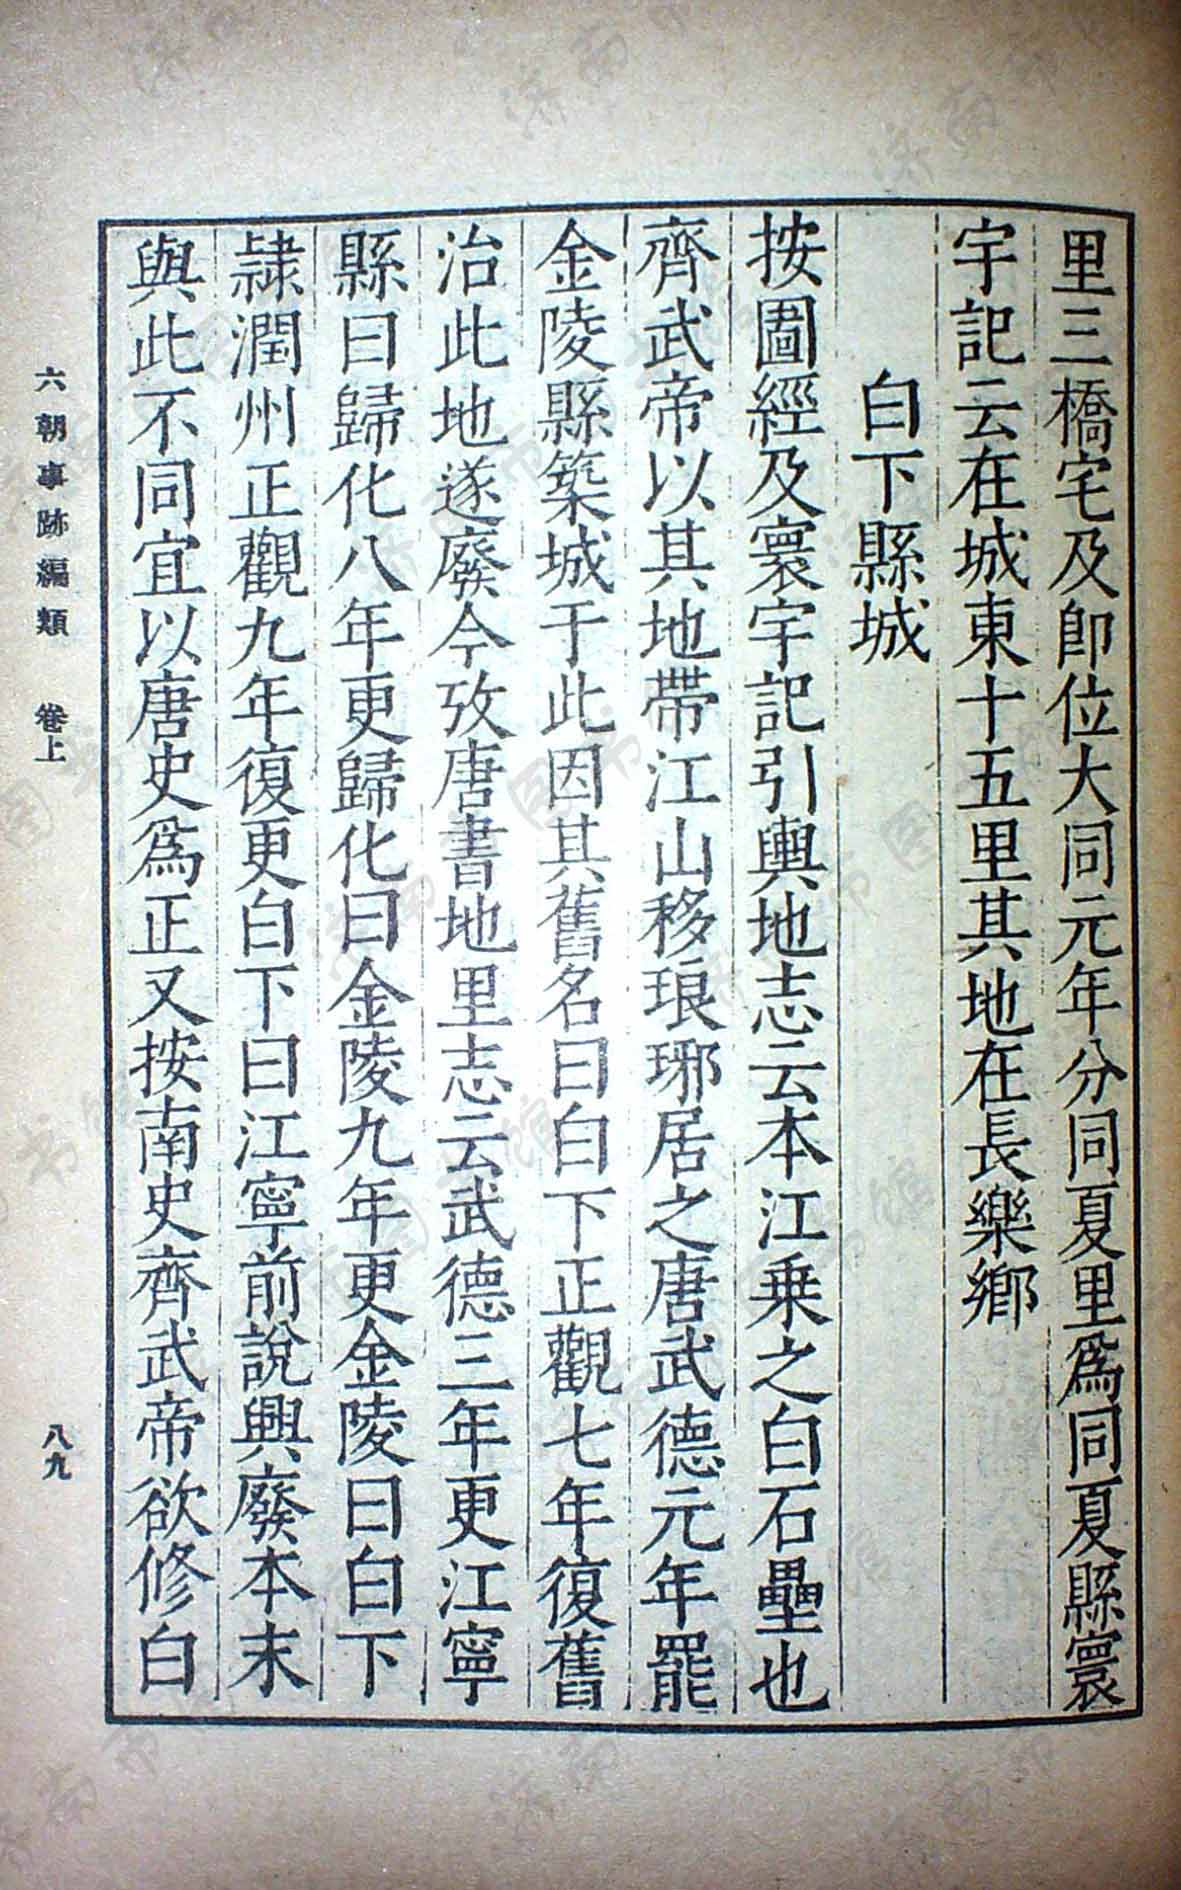 里三橋宅及卽位大同元年分同夏里爲同夏縣寰
宇記云在城東十五里其地在長樂鄉
白下縣城
按圖經及寰宇記引輿地志云本江乗之白石壘也
齊武帝以其地帶江山移琅琊居之唐武德元年罷
金陵縣築城于此因其舊名曰白下正觀七年復舊
治此地遂廢今攷唐書地里志云武德三年更江寧
縣曰歸化八年更歸化曰金陵九年更金陵曰白下
隷潤州正觀九年復更白下曰江寧前說興廢本末
與此不同宜以唐史爲正又按南史齊武帝欲修白
六朝事跡編類 卷上
八九